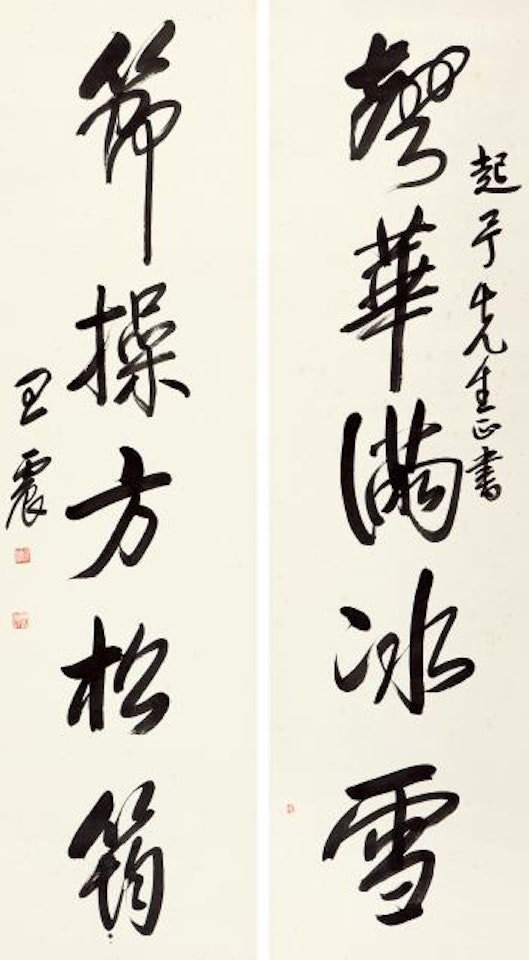 起予先生正書
聲華滿冰雪
節操方松筠
王震